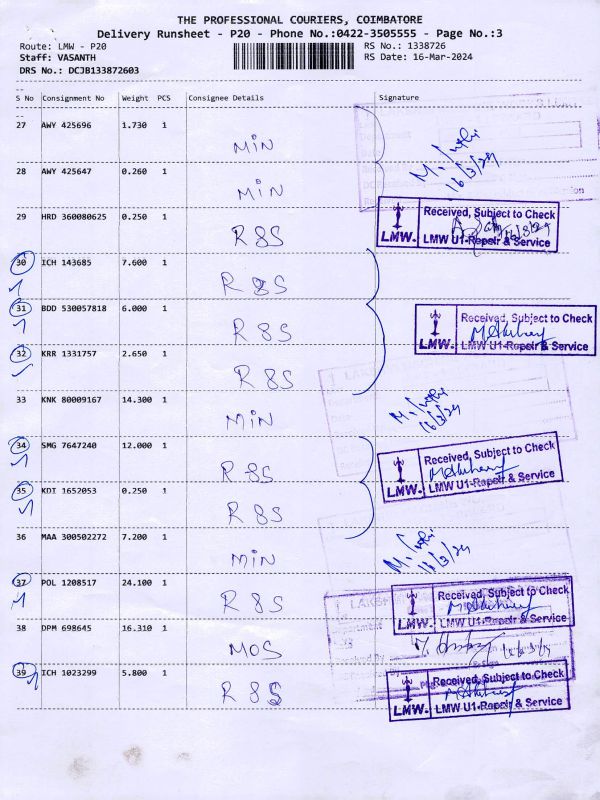 THE PROFESSIONAL COURIERS, COIMBATORE
Delivery Runsheet - P20 - Phone No.:0422-3505555 - Page No.:3
Route: LMW - P20 RS No.: 1338726
Staff: VASANTH RS Date: 16-Mar-2024
DRS No.: DCJB133872603
S No Consignment No Weight PCS Consignee Details Signature
27 AWY 425696 1.730 1 MIN
16/3/24
28 AWY 425647 0.260 1 MIN
29 HRD 360080625 0.250 1 R&S
Received, Subject to Check
LMW. LMW U1-Repair & Service
30 ICH 143685 7.600 1 R&S
31 BDD 530057818 6.000 1 R&S
Received, Subject to Check
LMW. LMW U1-Repair & Service
32 KRR 1331757 2.650 1 R&S
33 KNK 80009167 14.300 1 MIN
16/3/24
34 SMG 7647240 12.000 1 R&S
Received, Subject to Check
LMW. LMW U1-Repair & Service
35 KDI 1652053 0.250 1 R&S
36 MAA 300502272 7.200 1 MIN
16/3/24
37 POL 1208517 24.100 1 R&S
Received, Subject to Check
LMW. LMW U1-Repair & Service
38 DPM 698645 16.310 1 MOS
39 ICH 1023299 5.800 1 R&S
Received, Subject to Check
LMW. LMW U1-Repair & Service